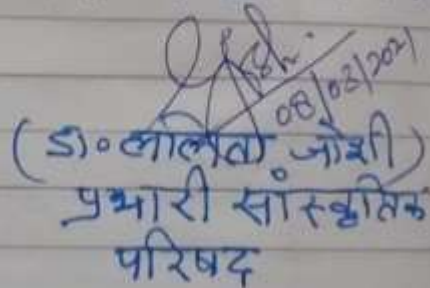 08/03/2021
(डा० ललिता जोशी)
प्रभारी सांस्कृतिक
परिषद